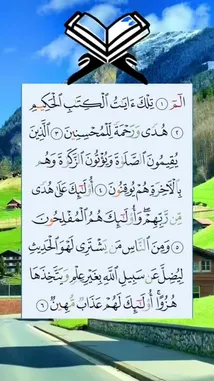 الٓمٓ ١ تِلْكَ ءَايَٰتُ ٱلْكِتَٰبِ ٱلْحَكِيمِ
٢ هُدًى وَرَحْمَةً لِّلْمُحْسِنِينَ ٣ ٱلَّذِينَ
يُقِيمُونَ ٱلصَّلَوٰةَ وَيُؤْتُونَ ٱلزَّكَوٰةَ وَهُم
بِٱلْءَاخِرَةِ هُمْ يُوقِنُونَ ٤ أُو۟لَٰٓئِكَ عَلَىٰ هُدًى
مِّن رَّبِّهِمْ وَأُو۟لَٰٓئِكَ هُمُ ٱلْمُفْلِحُونَ
٥ وَمِنَ ٱلنَّاسِ مَن يَشْتَرِى لَهْوَ ٱلْحَدِيثِ
لِيُضِلَّ عَن سَبِيلِ ٱللَّهِ بِغَيْرِ عِلْمٍ وَيَتَّخِذَهَا
هُزُوًا أُو۟لَٰٓئِكَ لَهُمْ عَذَابٌ مُّهِينٌ ٦